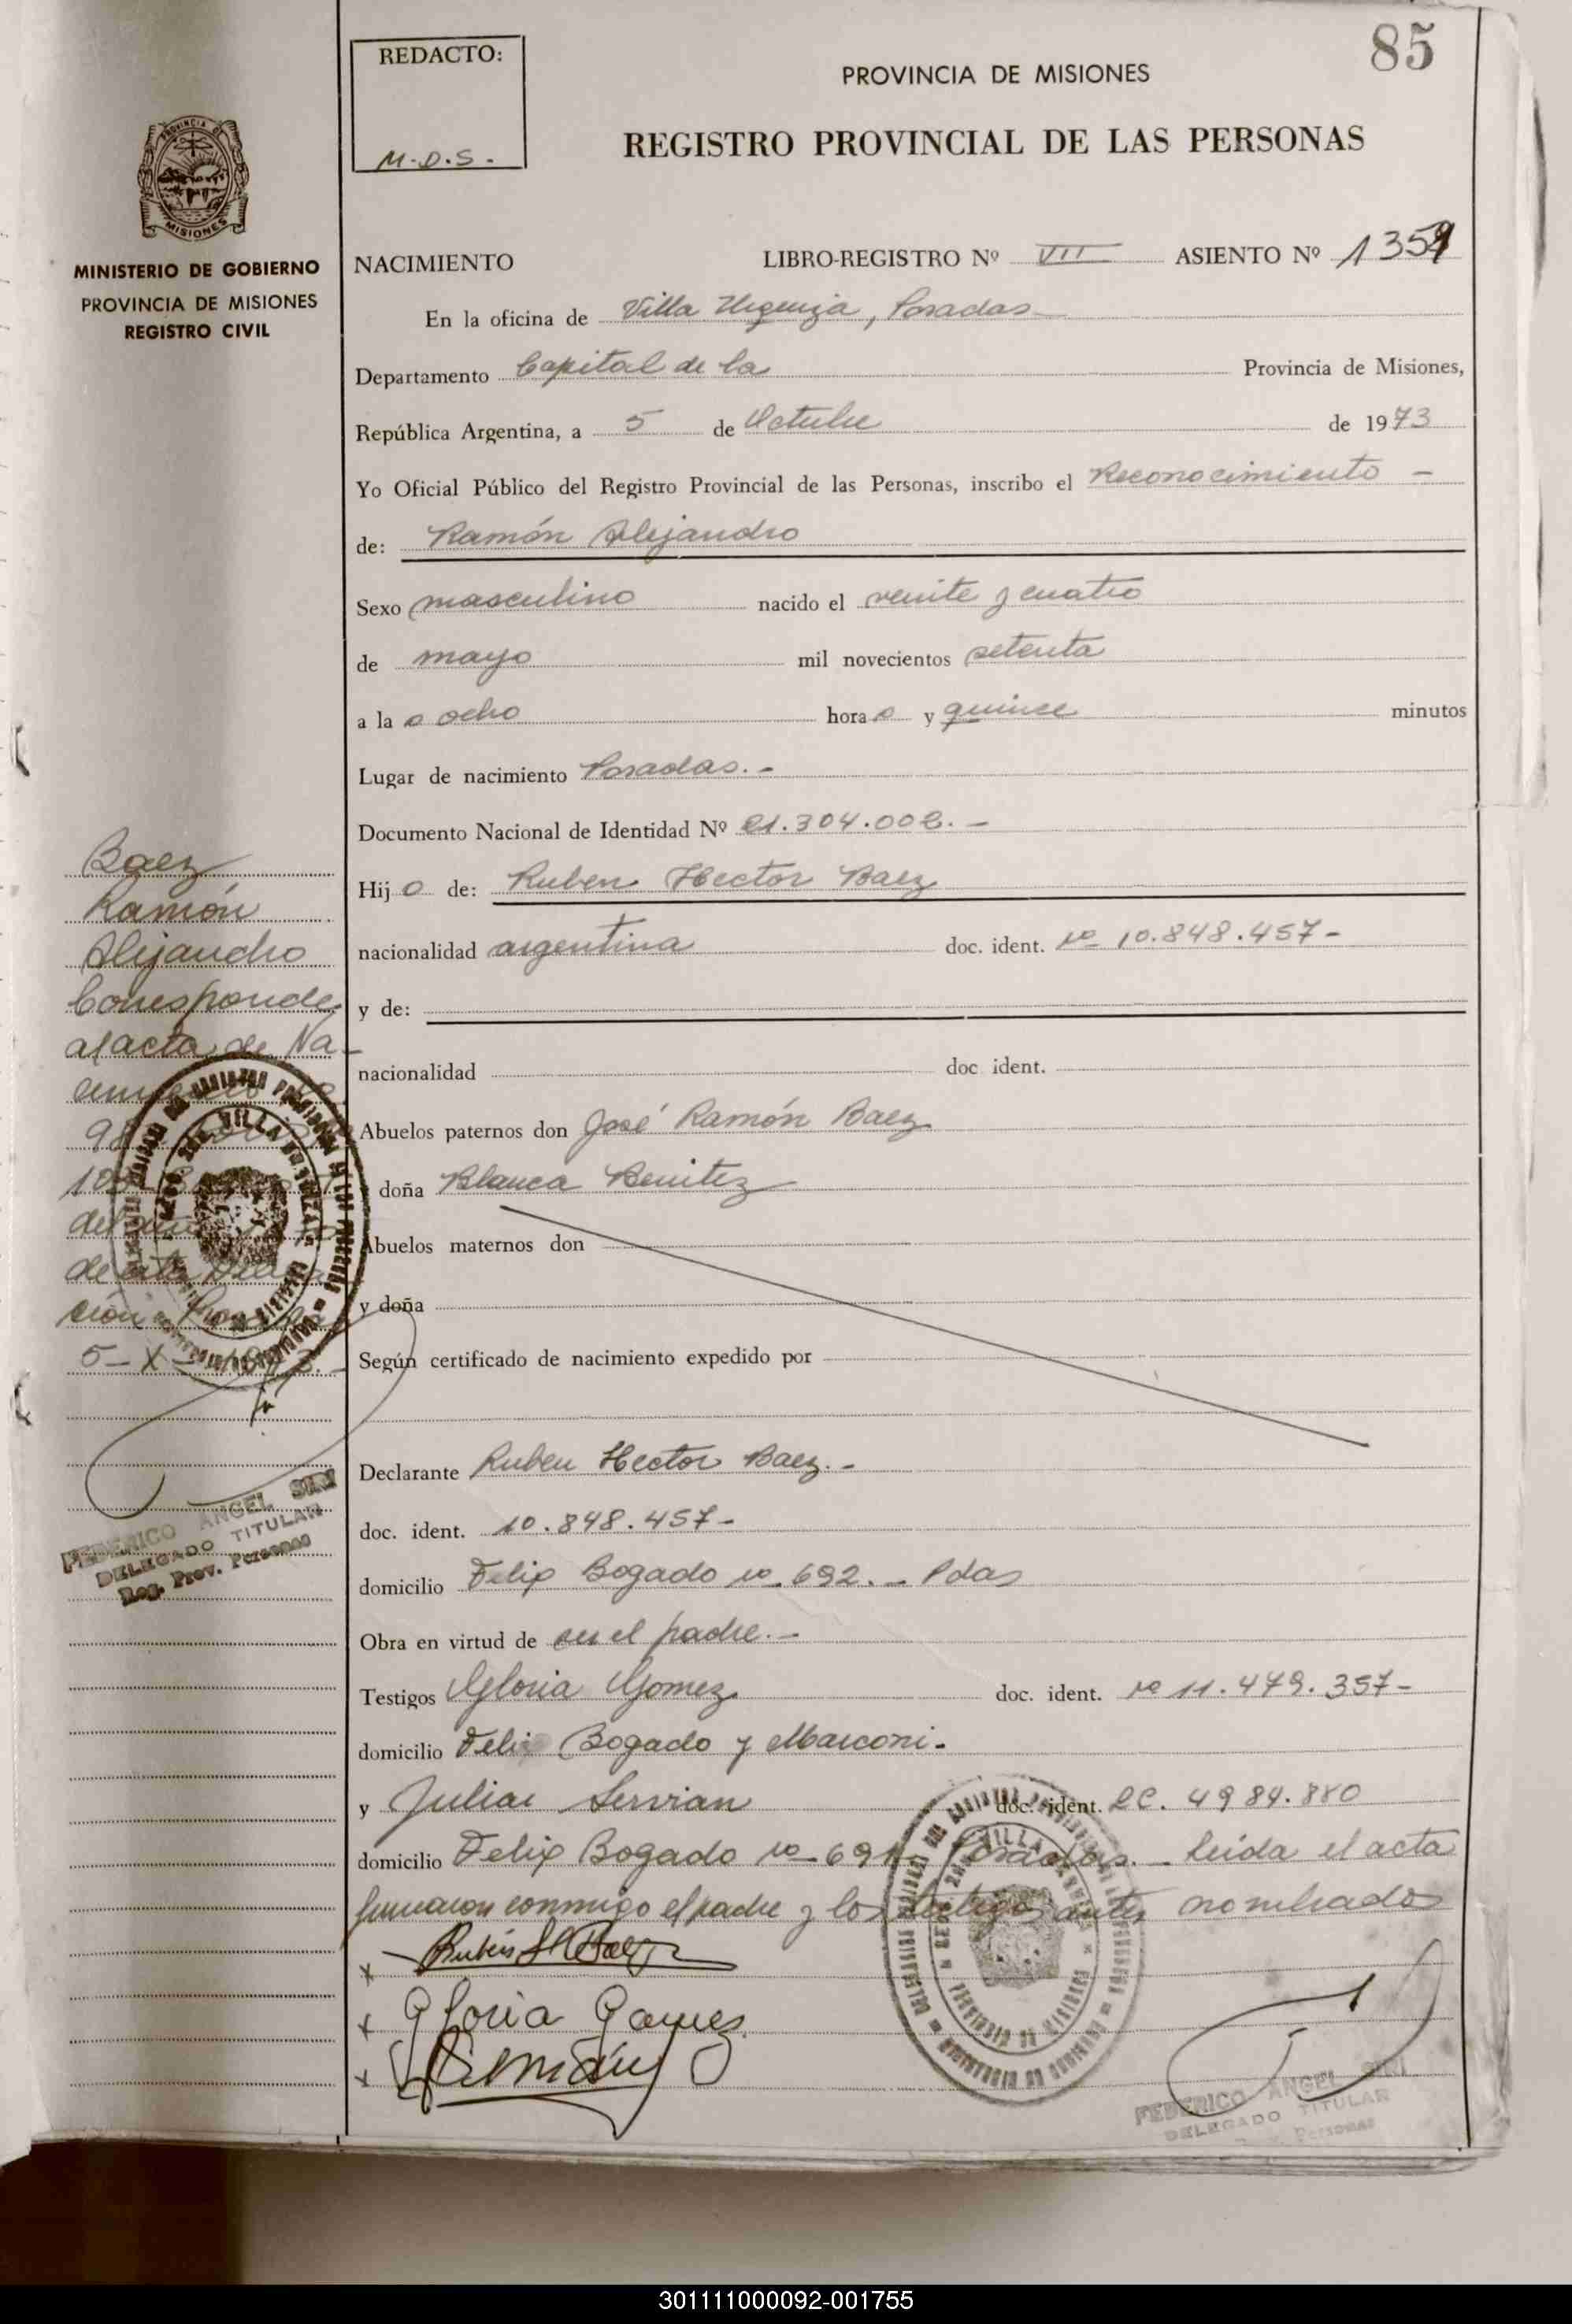 85
REDACTO:
M.D.S.
PROVINCIA DE MISIONES
REGISTRO PROVINCIAL DE LAS PERSONAS
PROVINCIA DE
MISIONES
MINISTERIO DE GOBIERNO
PROVINCIA DE MISIONES
REGISTRO CIVIL
NACIMIENTO LIBRO-REGISTRO Nº VII ASIENTO Nº
En la oficina de Villa Urquiza, Posadas
Departamento Capital de la Provincia de Misiones,
República Argentina, a 5 de Octubre de 1973
Yo Oficial Público del Registro Provincial de las Personas, inscribo el Reconocimiento -
de: Ramón Alejandro
Sexo masculino nacido el veinte y cuatro
de mayo mil novecientos setenta
a las ocho horas y quince minutos
Lugar de nacimiento Posadas. -
Documento Nacional de Identidad Nº 21.304.002. -
Hijo de: Ruben Hector Baez
nacionalidad argentina doc. ident. Nº 10.848.457-
y de:
nacionalidad doc ident.
Abuelos paternos don José Ramón Baez
doña Blanca Benitez
Abuelos maternos don
y doña
Según certificado de nacimiento expedido por
Declarante Ruben Hector Baez. -
doc. ident. 10.848.457-
domicilio Felix Bogado Nº 692. - Pdas
Obra en virtud de ser el padre. -
Testigos Gloria Gomez doc. ident. Nº 11.479.357-
domicilio Felix Bogado y Marconi.
y Julian Servian doc. ident. LC. 4984.880
domicilio Felix Bogado Nº Posadas. - Leída el acta
firmaron conmigo el padre y los testigos antes nombrados
x Rubén H Baez
x Gloria Gomez
x
FEDERICO ANGEL
DELEGADO TITULAR
Personas
Baez
Ramón
Alejandro
Corresponde
al acta de Na-
del año
de esta
ción Posadas
5-X-1973.-
FEDERICO ANGEL
DELEGADO TITULAR
Reg. Prov. Personas
301111000092-001755